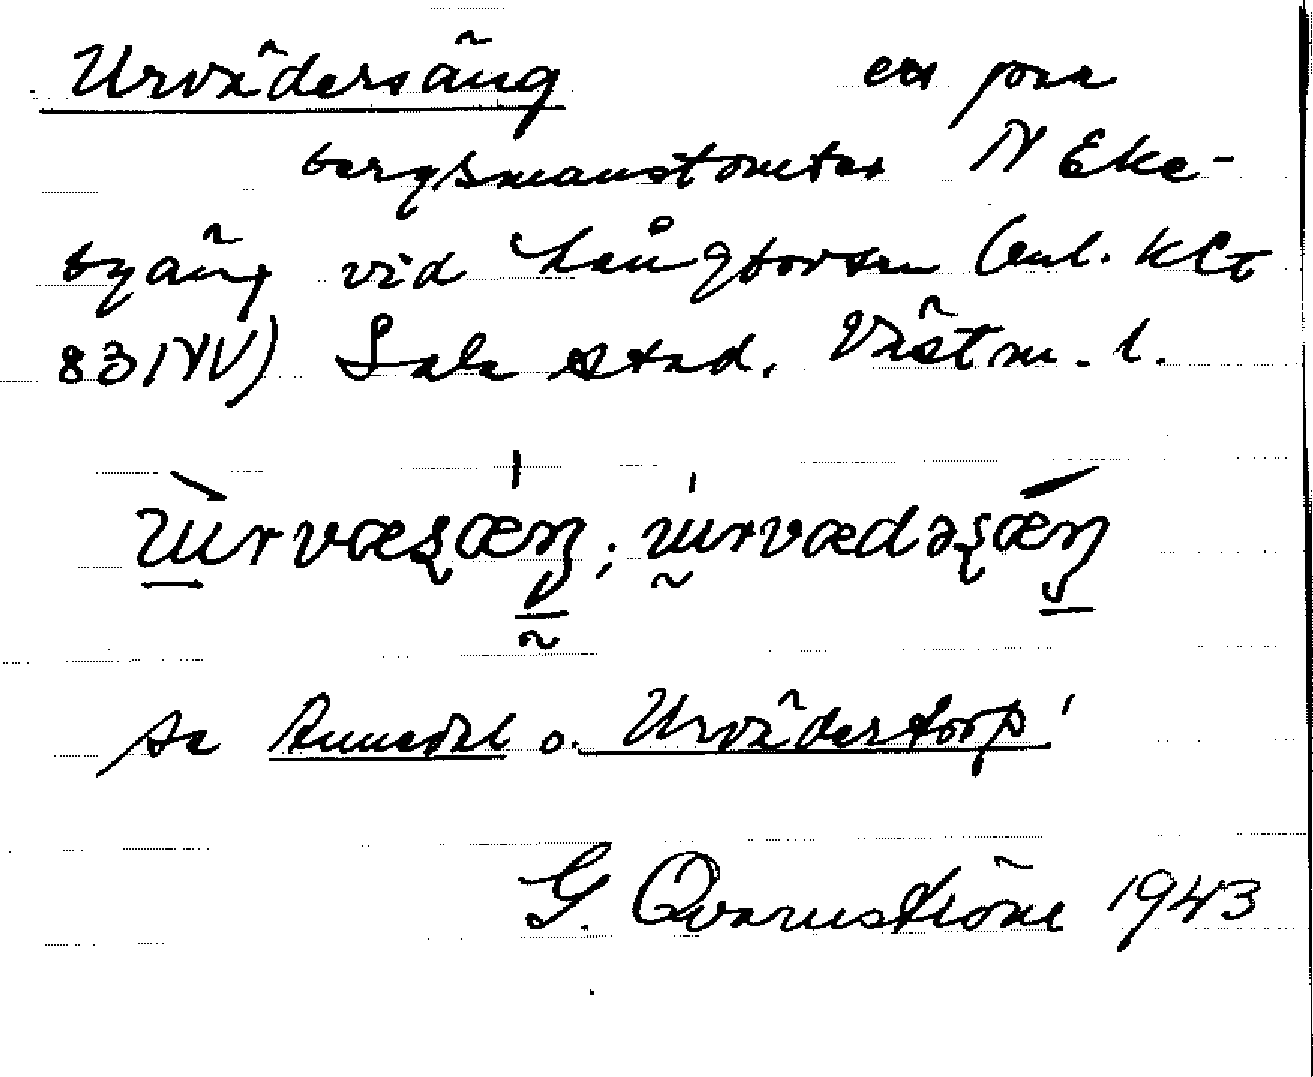 Urvädersäng en par
bergsmanstomter N Eke-
byäng vid Långforsen (enl. Klt
83 NV) Sala stad, Västm. l.
ùrvæʂæŋ; úrvædəʂæŋ
se o. Urväderstorp!
G. Qvarnström 1943